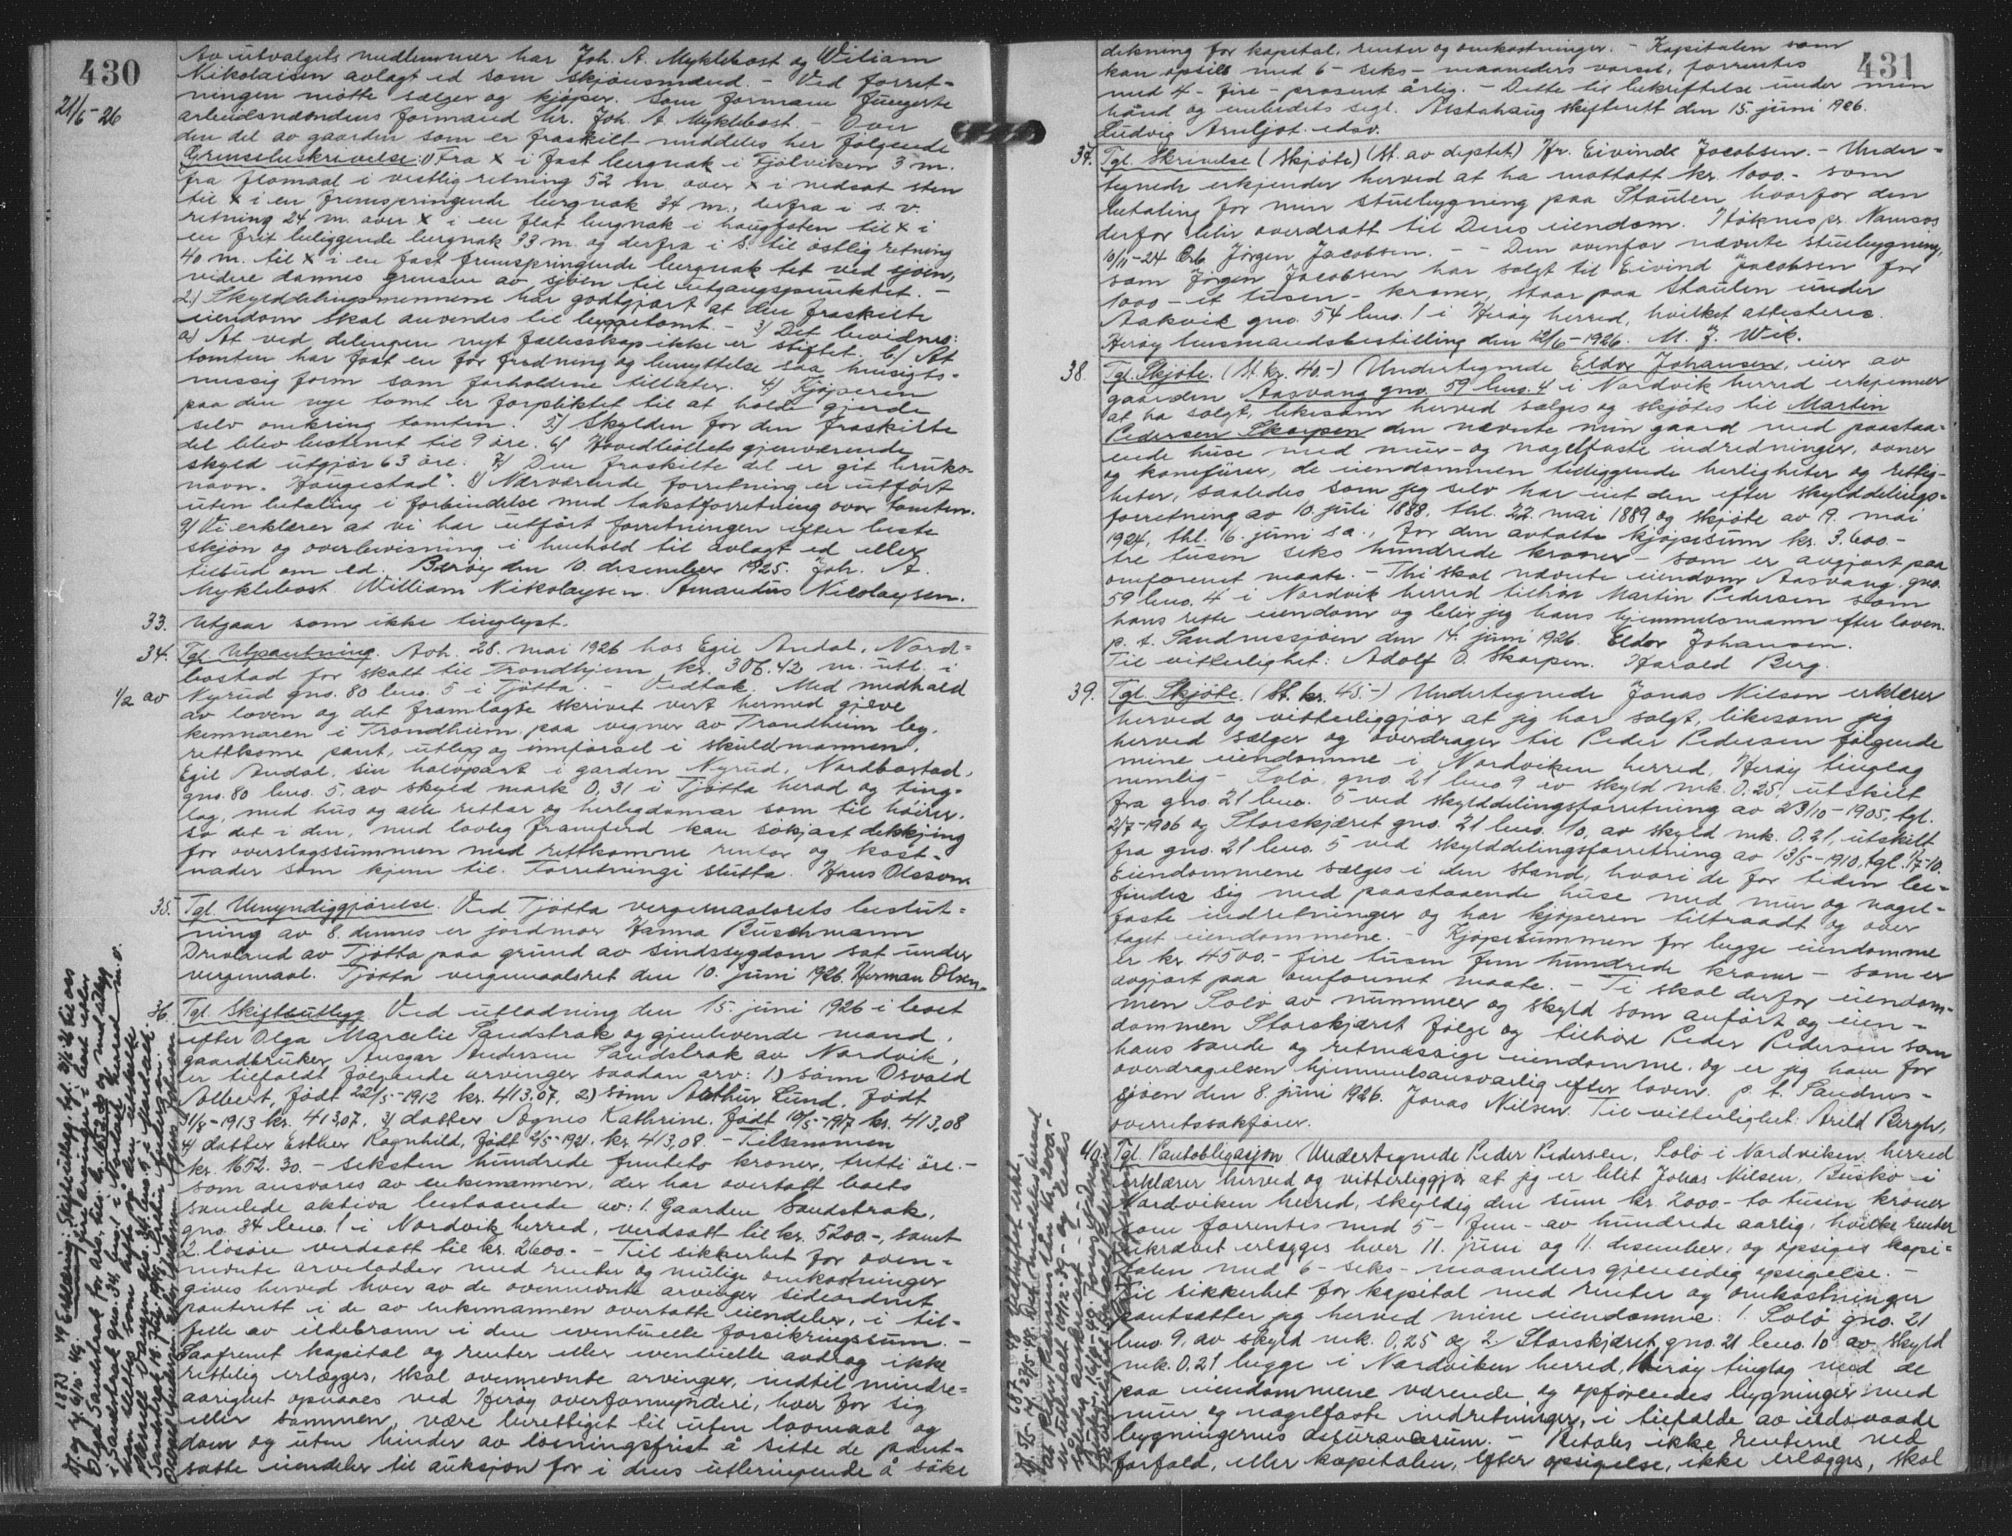 430
21/6-26
Av utvalgets medlemmer har Joh. A. Myklebost og Wiliam
Nikolaisen avlagt ed som skjønsmænd. - Ved forret-
ningen møtte sælger og kjøper. Som formann fungerte
arbeidsnændens formand hr. Joh. A. Myklebost. - Over
den del av gaarden som er fraskilt meddeles her følgende
Grensebeskrivelse: 1) Fra x i fast bergnak i Fjølviken 3 m.
fra flomaal i vestlig retning 52 m. over x i nedsat sten
til x i en fremspringende bergnak 34 m., derfra i s.v.
retning 24 m. over x i en flat bergnak i haugfoten til x i
en frit beliggende bergnak 33 m. og derfra i s. til østlig retning
40 m. til x i en fast fremspringende bergnak tet ved sjøen,
videre dannes grensen av sjøen til utgangspunktet. -
2) Skylddelingsmennene har godtgjort at den fraskilte
eiendom skal anvendes til byggetomt. - 3) Det bevidnes:
a) At ved delingen nyt fællesskap ikke er stiftet. b) At
tomten har faat en for fredning og benyttelse saa hensigts-
messig form som forholdene tillater. 4) Kjøperen
paa den nye tomt er forpliktet til at holde gjerde
selv omkring tomten. 5) Skylden for den fraskilte
del blev bestemt til 9 øre. 6) Hovedbøllets gjenværende
skyld utgjør 63 øre. 7) Den fraskilte del er git bruks-
navn "Haugestad". 8) Nærværende forretning er utført
uten betaling i forbindelse med takstforretning over tomten.
9) Vi erklærer at vi har utført forretningen efter beste
skjøn og overbevisning i henhold til avlagt ed eller
tilbud om ed. Berøy den 10. desember 1925. Joh. A.
Myklebost William Nikolaysen. Amandus Nicolaysen.
33. Utgaar som ikke tinglyst.
34. Tgl. Utpantning. Avh. 28. mai 1926 hos Egil Andal, Nord-
bostad for skatt til Trondhjem kr. 306.42 m. utl. i
1/2 av Nyrud gno. 80 bno. 5 i Tjøtta. - Vedtak. Med medhald
av loven og det framlagte skrivet vert hermed gjeve
kemnaren i Trondheim paa vegner av Trondheim by,
rettkome pant, utlegg og innførsel i skuldmannen,
Egil Andal, sin halvpart i garden Nyrud, Nordbostad,
gno. 80 bno. 5, av skyld mark 0,31 i Tjøtta herad og ting-
lag, med hus og alle rettar og herlegdomar som til høirer,
so det i den, med lovleg framferd kan søkjast dekkjing
for overslagssummen med rettkomne rentor og kost-
nader som kjem til. Forretningi slutta. Hans Olsson.
35. Tgl. Umyndiggjørelse. Ved Tjøtta vergemaalsrets beslut-
ning av 8. dennes er jordmor Hanna Buschmann
Drevland av Tjøtta paa grund av sindssygdom sat under
vergemaal. Tjøtta vergemaalsret den 10. juni 1926. Herman Olsen.
36. Tgl. Skifteutlegg Ved utlodning den 15. juni 1926 i boet
efter Olga Marcelie Sandstrak og gjenlevende mand,
gaardbruker Ansgar Andersen Sandstrak av Nordvik,
er tilfaldt følgende arvinger saadan arv: 1) sønn Osvald
Albert, født 22/5-1912 kr. 413,07, 2) sønn Arthur Lund, født
31/8-1913 kr. 413,07, 3) datter Agnes Kathrine, født 10/5-1917 kr. 413,08
4) datter Esther Ragnhild, født 2/5-1921, kr. 413,08. - Tilsammen
kr. 1652.30. - seksten hundrede femtito kroner, tretti øre. -
som ansvares av enkemannen, der har overtatt boets
samlede aktiva bestaaende av: 1. Gaarden Sandstrak,
gno. 34 bno. 1 i Nordvik herred, verdsatt til kr. 5200.-, samt
2. løsøre verdsatt til kr. 2600.- - Til sikkerhet for oven-
nevnte arvelodder med renter og mulige omkostninger
gives herved hver av de ovennevnte arvinger sideordnet
panterett i de av enkemannen overtatte eiendeler, i til-
felle av ildebrann i den eventuelle forsikringssum. -
Saafremt kapital og renter eller eventuelle avdrag ikke
rettelig erlegges, skal ovennevnte arvinger, indtil mindre-
aarighet opnaaes ved Herøy overformynderi, hver for sig
eller sammen, være berettiget til uten lovmaal og
dom og uten hinder av løsningsfrist å sette de pant-
satte eiendeler til auksjon for i deres utbringende å søke
431
dekning for kapital, renter og omkostninger. - Kapitalen som
kan opsies med 6 - seks - maaneders varsel, forrentes
med 4 - fire - prosent årlig. - Dette til bekreftelse under min
hånd og embedets segl. Alstahaug skifterett den 15. juni 1926.
Ludvig Arnljot edsv.
37. Tgl. Skrivelse (Skjøte) (St. av deptet) Hr. Eivind Jacobsen. - Under-
tegnede erkjender herved at ha mottatt kr. 1000.- som
betaling for min stuebygning paa Staulen, hvorfor den
derfor blir overdratt til Deres eiendom. Høknes pr. Namsos
10/11-24 Erb. Jørgen Jacobsen. - - Den ovenfor nævnte stuebygning,
som Jørgen Jacobsen har solgt til Eivind Jacobsen for
1000 - et tusen - kroner, staar paa Staulen under
Aakvik gno. 54 bno. 1 i Herøy herred, hvilket attesteres.
Herøy lensmandsbestilling den 12/6-1926. M. J. Wik.
38. Tgl. Skjøte. (St. kr. 40.-) Undertegnede Eldor Johansen, eier av
gaarden Aasvang gno. 59 bno. 4 i Nordvik herred erkjenner
at ha solgt, likesom herved sælges og skjøtes til Martin
Pedersen Skorpen den nævnte min gaard med paastaa-
ende huse med mur- og nagelfaste indredninger, ovner
og komfürer, de eiendommen tilleggende herligheter og rettig-
heter, saaledes som jeg selv har eiet den efter skylddelings-
forretning av 10. juli 1888, thl. 22. mai 1889 og skjøte av 19. mai
1924, thl. 16. juni s.a., for den avtalte kjøpesum kr. 3.600.-
tre tusen seks hundrede kroner - som er avgjort paa
omforenet maate. - Thi skal nævnte eiendom Aasvang, gno.
59 bno. 4 i Nordvik herred tilhøre Martin Pedersen som
hans rette eiendom og blir jeg hans hjemmelsmann efter loven.
p.t. Sandnessjøen den 14. juni 1926 Eldor Johansen.
Til vitterlighet: Adolf O. Skorpen. Harald Berg.
39. Tgl. Skjøte. (St. kr. 45.-) Undertegnede Jonas Nilsen erklærer
herved og vitterliggjør at jeg har solgt, likesom jeg
herved sælger og overdrager til Peder Pedersen følgende
mine eiendomme i Nordviken herred, Herøy tinglag
nemlig - Solø, gno. 21 bno 9 av skyld mk. 0,25, utskilt
fra gno. 21 bno. 5 ved skylddelingsforretning av 23/10-1905, tgl.
2/7-1906 og Storskjæret gno. 21 bno. 10, av skyld mk. 0,21, utskilt
fra gno. 21 bno. 5 ved skylddelingsforretning av 13/5-1910, tgl. 1/7-10.
Eiendommene sælges i den stand, hvori de for tiden be-
findes sig med paastaaende huse med mur og nagel-
faste indretninger og har kjøperen tiltraadt og over
taget eiendommene. - Kjøpesummen for begge eiendomme
er kr. 4500.- fire tusen fem hundrede kroner - som er
avgjort paa omforenet maate. - Ti skal derfor eiendom-
men Solø av nummer og skyld som anført og eien-
dommen Storskjæret følge og tilhøre Peder Pedersen som
hans sande og retmessige eiendomme og er jeg ham for
overdragelsen hjemmelsansvarlig efter loven. p.t. Sandnes-
sjøen den 8. juni 1926. Jonas Nilsen. Til vitterlighet: Arild Bergh,
overretssakfører.
40. Tgl. Pantobligasjon Undertegnede Peder Pedersen, Solø i Nordviken herred
erklærer herved og vitterliggjør at jeg er blet Johas Nilsen, Buskø i
Nordviken herred, skyldig den sum kr. 2000.- to tusen kroner
som forrentes med 5 - fem - av hundrede aarlig, hvilke renter
ukrævet erlægges hver 11. juni og 11. desember, og opsiges kapi-
talen med 6 - seks - maaneders gjensidig opsigelse. -
Til sikkerhet for kapital med renter og omkostninger
pantsætter jeg herved mine eiendomme: 1. Solø gno. 21
bno 9, av skyld mk. 0,25 og 2/ Storskjæret gno. 21 bno. 10 av skyld
mk. 0,21 begge i Nordviken herred, Herøy tinglag med de
paa eiendommene værende og opførendes bygninger med
mur og nagelfaste indretninger, i tilfælde av ildsvaade
bygningernes assurancesum. - Betales ikke renterne ved
forfald, eller kapitalen, efter opsigelse, ikke erlægges, skal